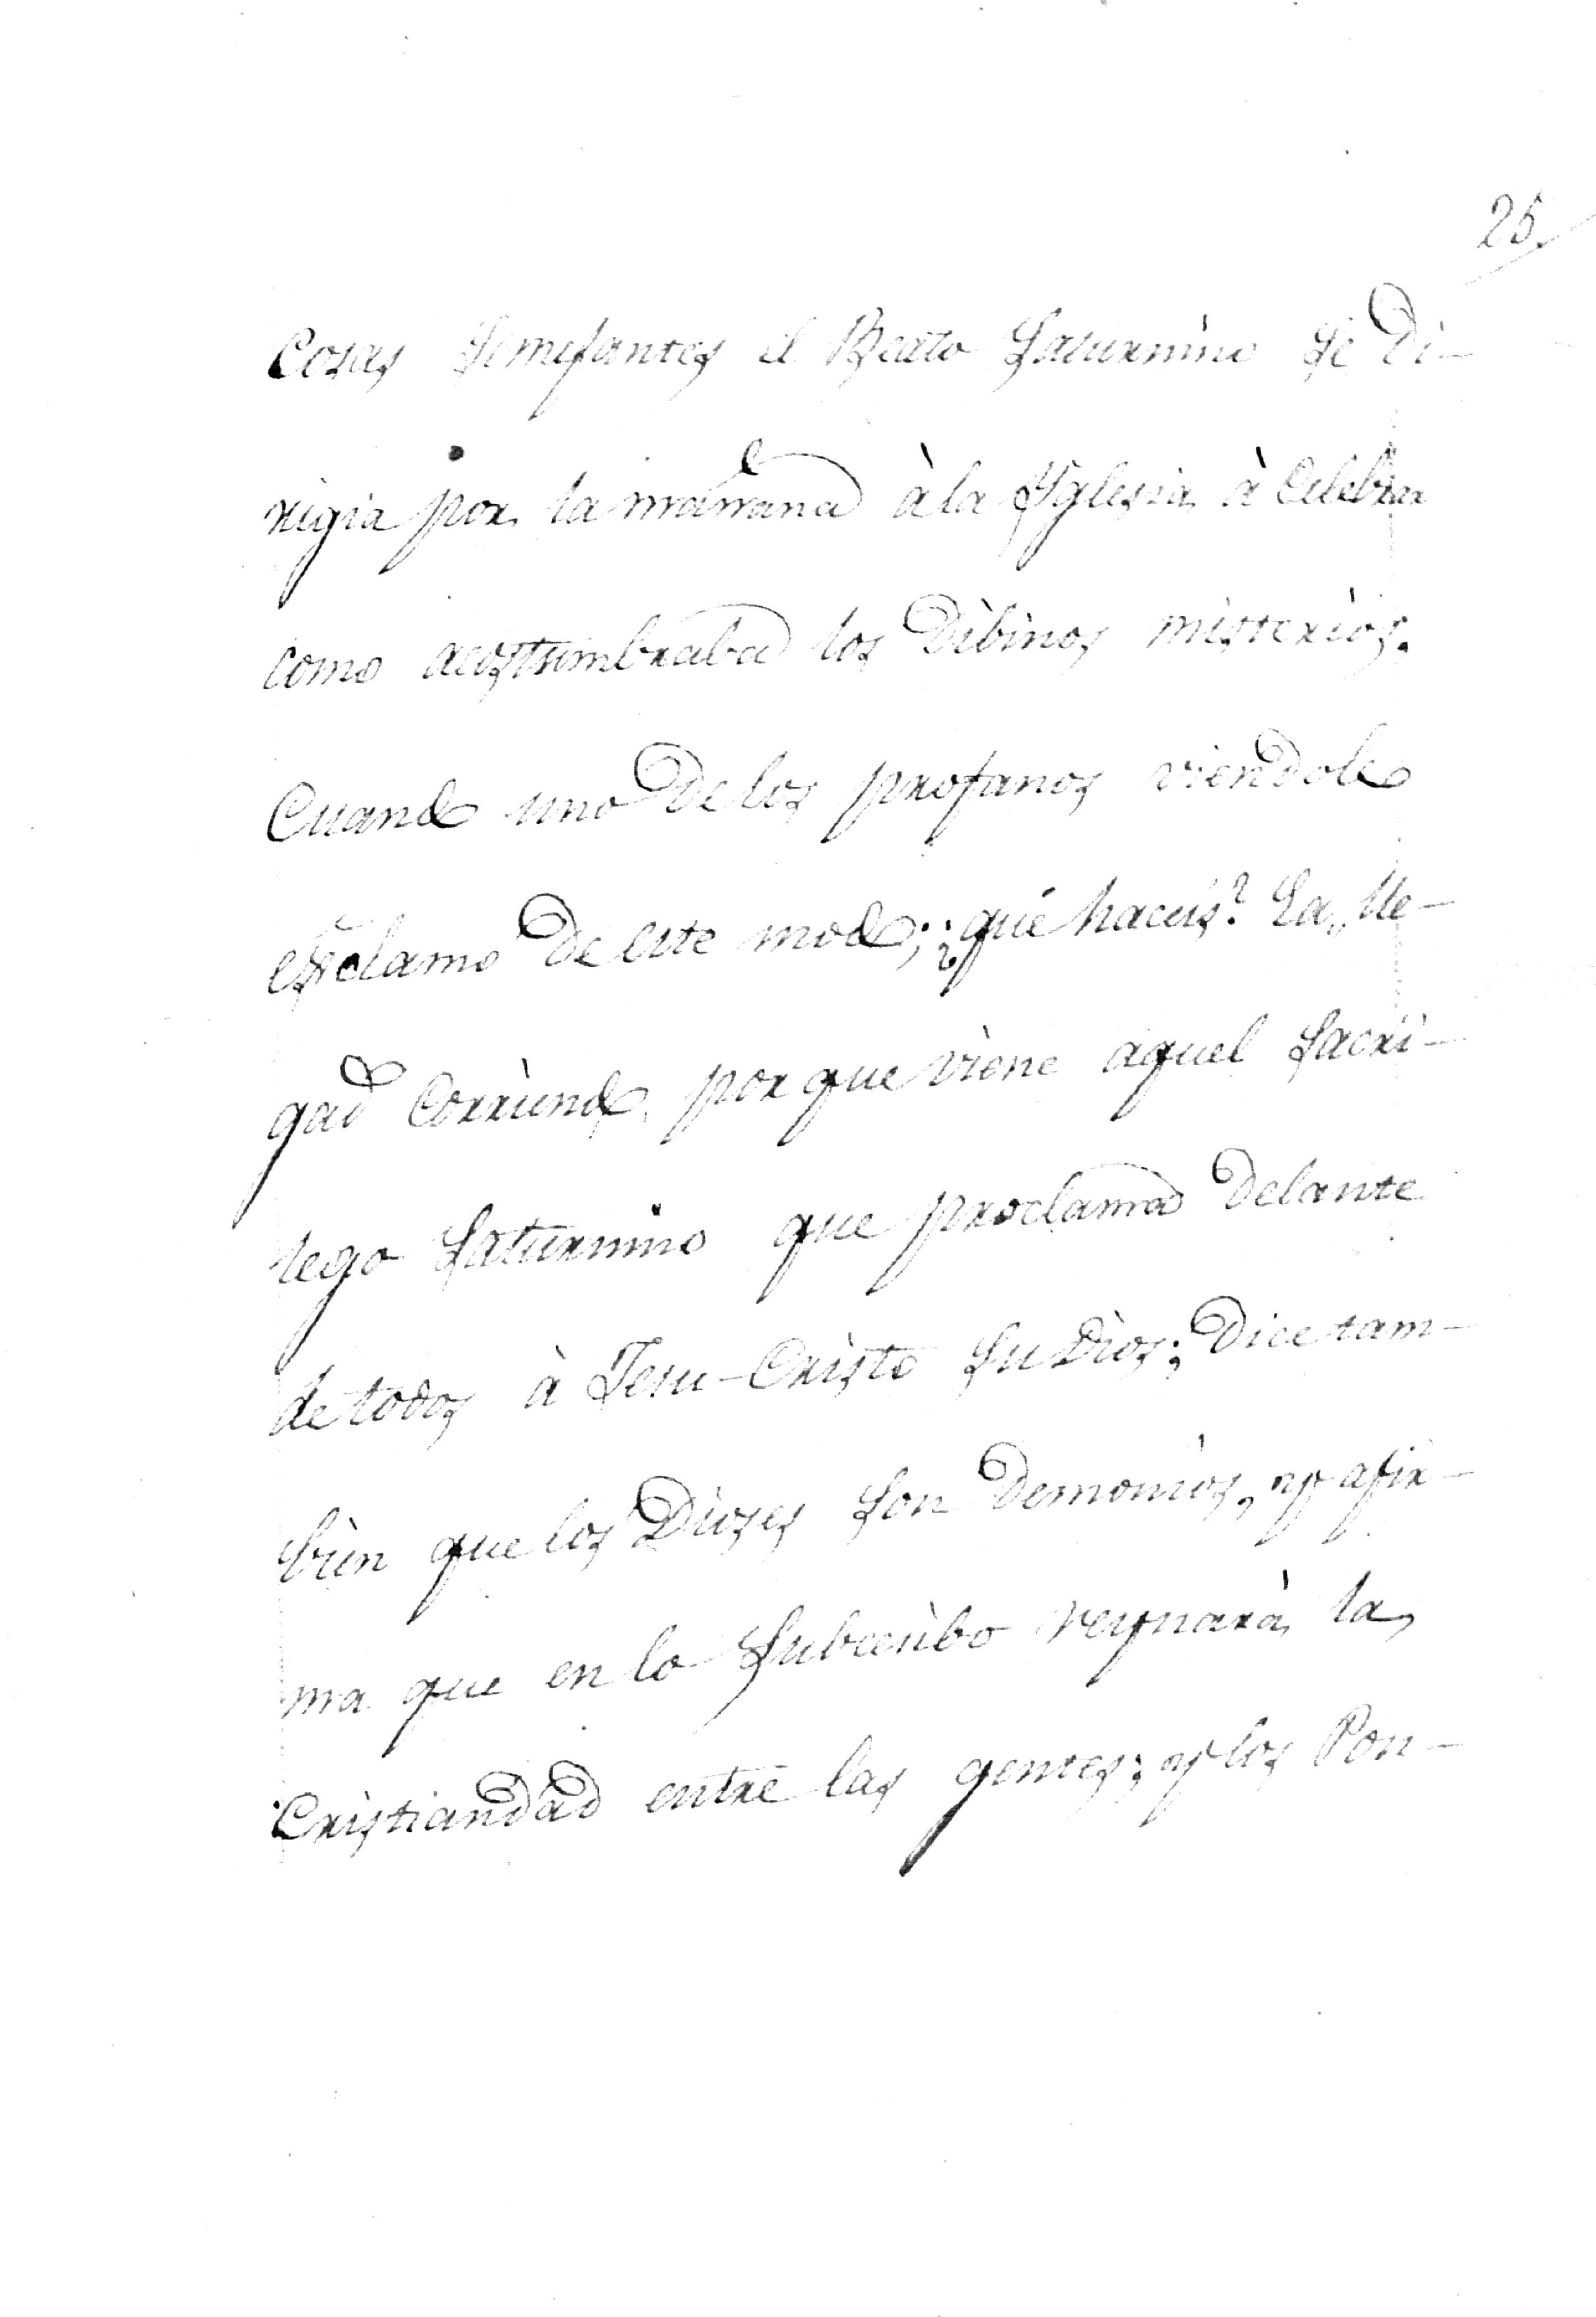 25
Cosas semejantes el Beato Saturnino se di-
rigia por la mañana à la Yglesia à Celebrar
como acostumbraba los Dibinos misterios.
Cuando uno de los profanos viendole
esclamo de este modo; ¿qué haceis? Ea, lle-
gad Corriendo, por que viene aquel sacri-
lego Saturnino que proclama delante
de todos à Jesu-Cristo su Dios; Dice tam-
bien que los Dioses son Demonios, y afir-
ma que en lo subcesibo reynarà la
Cristiandad entre las gentes; y los Pon-